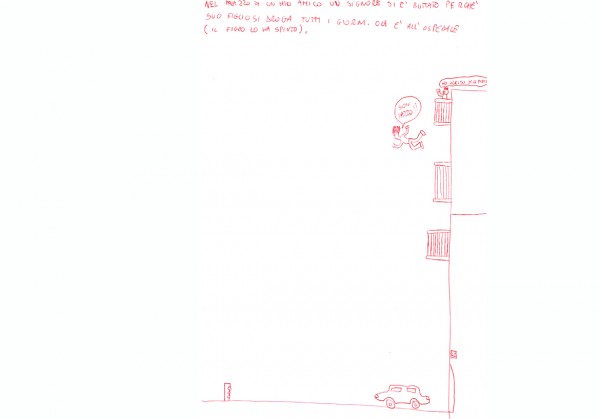 NEL PALAZZO DI UN MIO AMICO UN SIGNORE SI E' BUTTATO PERCHE'
SUO FIGLIO SI DROGA TUTTI I GIORNI. ORA E' ALL'OSPEDALE
(IL FIGLIO LO HA SPINTO).